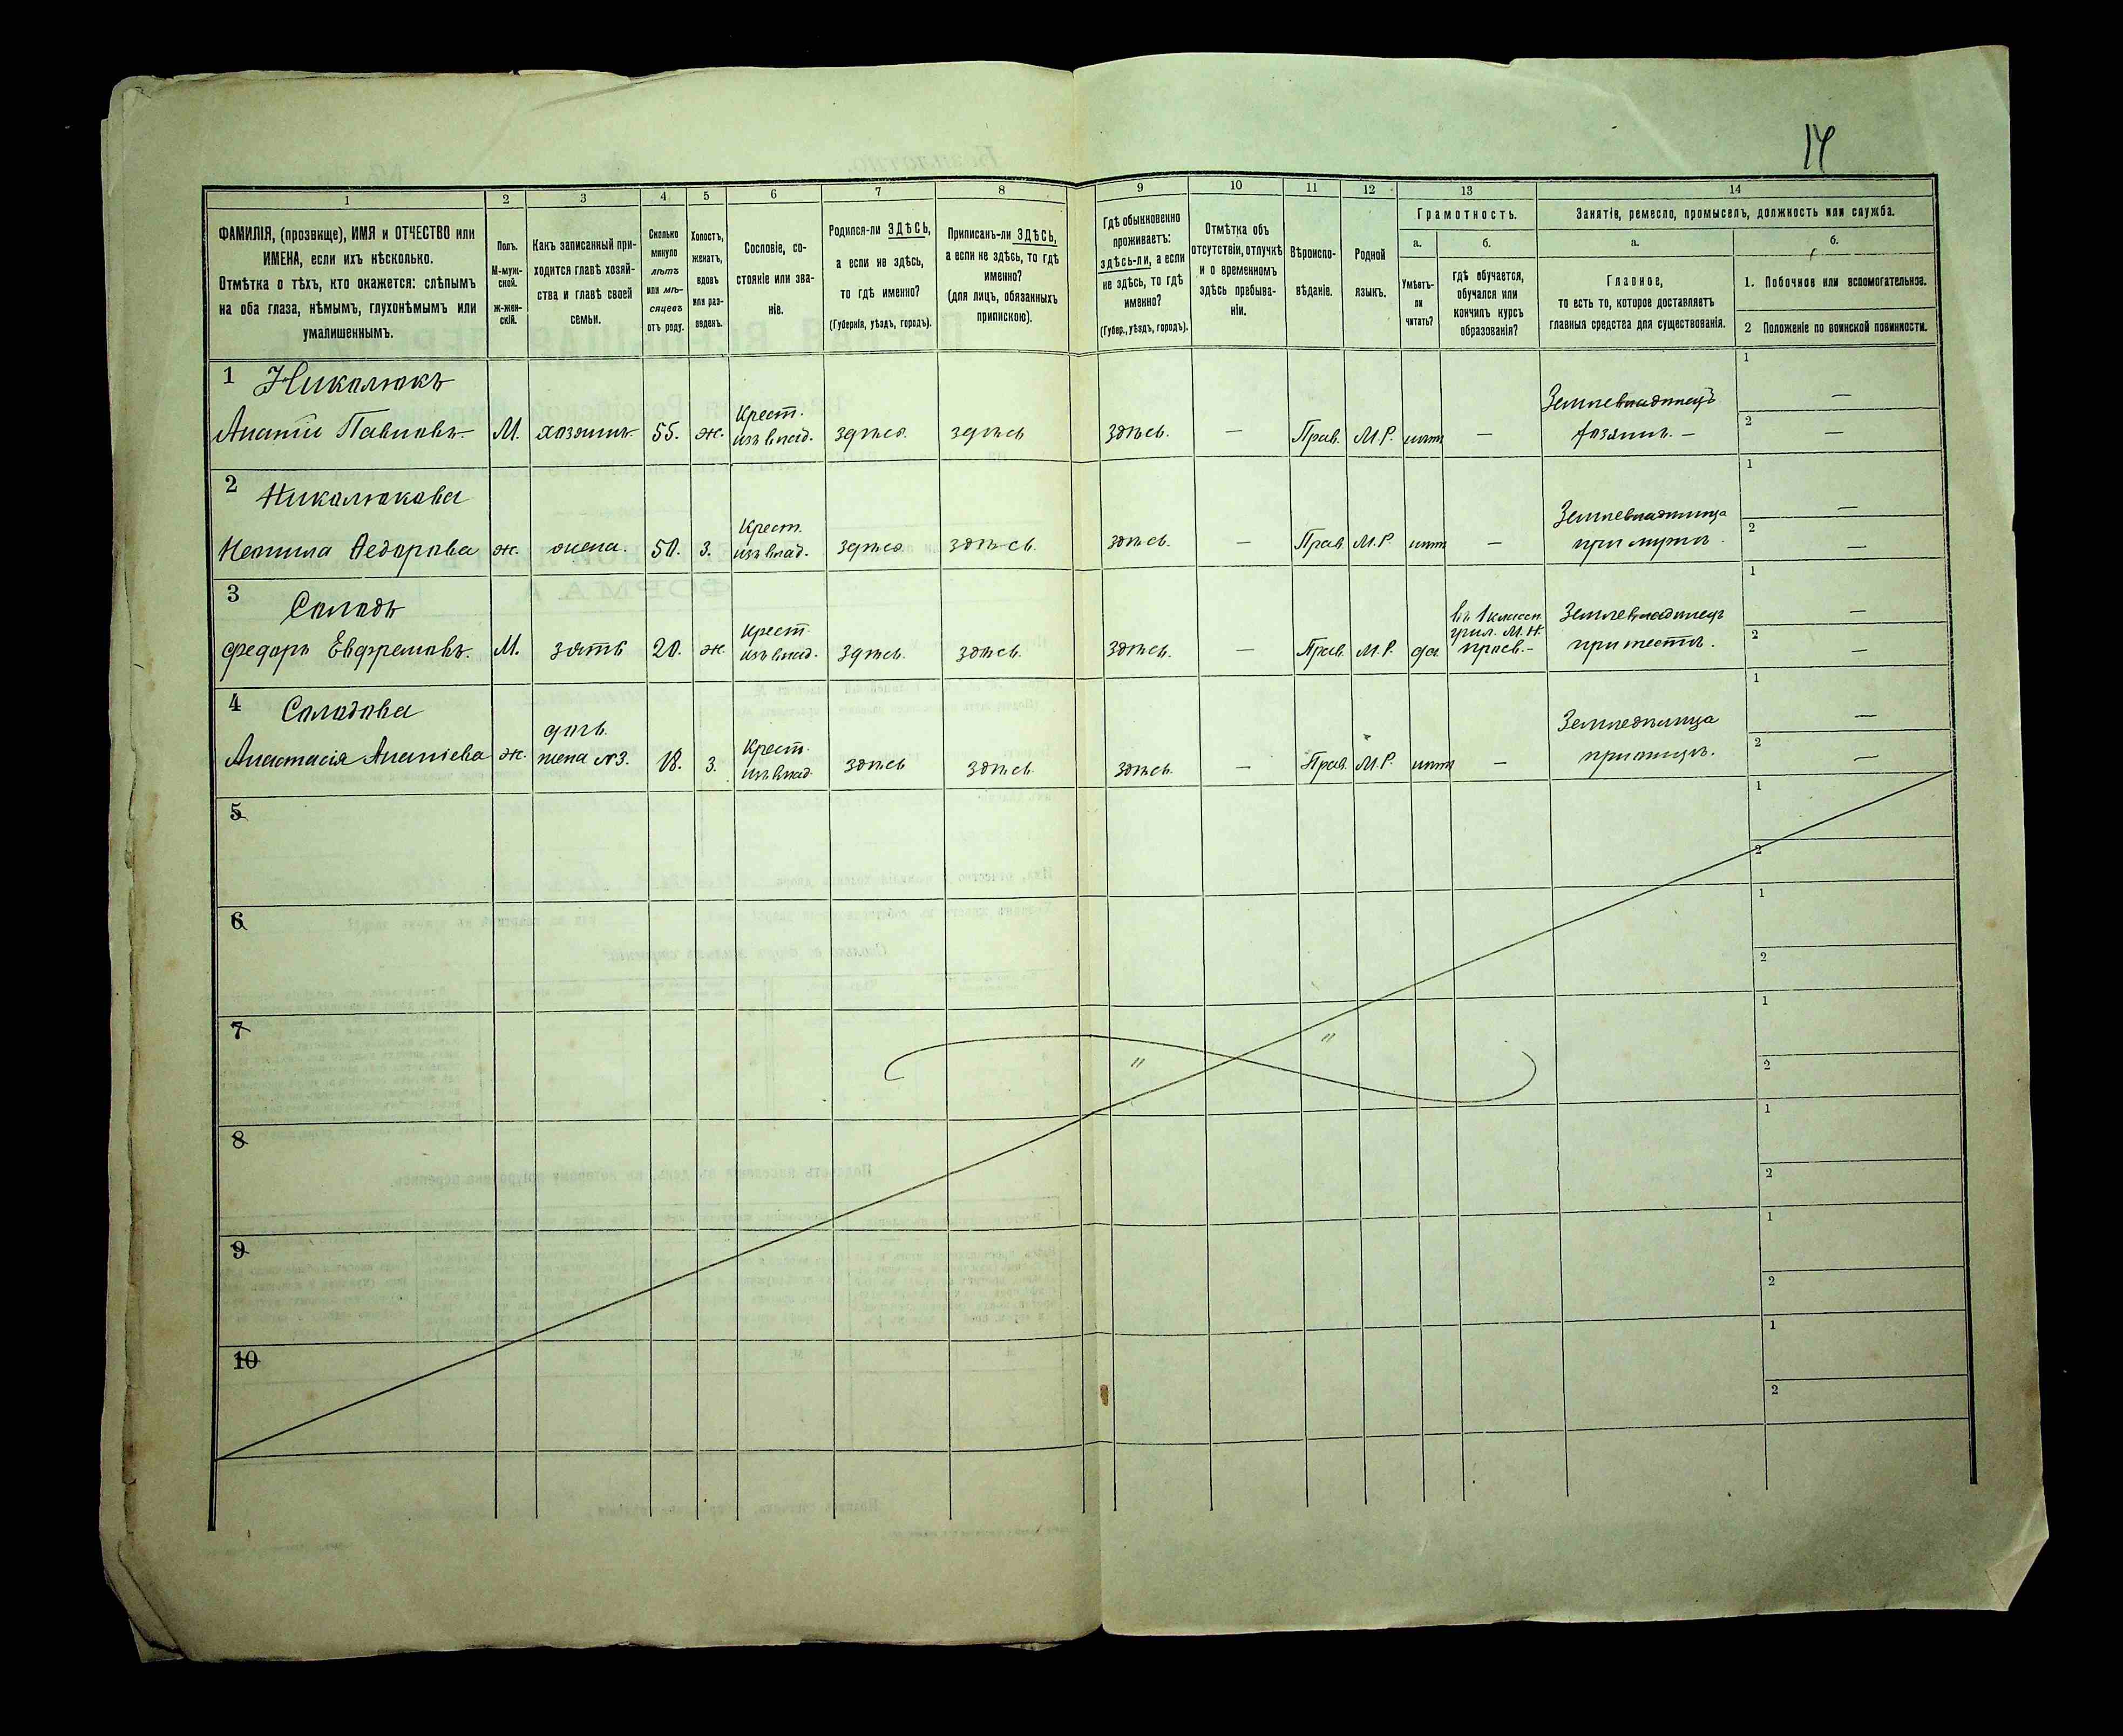 14
1 2 3 4 5 6 7 8 9 10 11 12 13 14
ФАМИЛІЯ, (прозвище), ИМЯ и ОТЧЕСТВО или
ИМЕНА, если ихъ нѣсколько.
Отмѣтка о тѣхъ, кто окажется: слѣпымъ
на оба глаза, нѣмымъ, глухонѣмымъ или
умалишеннымъ.
Полъ.
М-муж-
ской.
ж-жен-
скій.
Какъ записанный при-
ходится главѣ хозяй-
ства и главѣ своей
семьи.
Сколько
минуло
лѣтъ
или мѣ-
сяцевъ
отъ роду.
Холостъ,
женатъ,
вдовъ
или раз-
веденъ.
Сословіе, со-
стояніе или зва-
ніе.
Родился-ли ЗДѢСЬ,
а если не здѣсь,
то гдѣ именно?
(Губернія, уѣздъ, городъ).
Приписанъ-ли ЗДѢСЬ,
а если не здѣсь, то гдѣ
именно?
(для лицъ, обязанныхъ
припискою).
Гдѣ обыкновенно
проживаетъ:
здѣсь-ли, а если
не здѣсь, то гдѣ
именно?
(Губер., уѣздъ, городъ).
Отмѣтка объ
отсутствіи, отлучкѣ
и о временномъ
здѣсь пребыва-
ніи.
Вѣроиспо-
вѣданіе.
Родной
языкъ.
Грамотность.
а.
Умѣетъ-
ли
читать?
б.
гдѣ обучается,
обучался или
кончилъ курсъ
образованія?
Занятіе, ремесло, промыселъ, должность или служба.
а.
Главное,
то есть то, которое доставляетъ
главныя средства для существованія.
б.
1. Побочное или вспомогательное.
2 Положеніе по воинской повинности.
1 Николюкъ
Ананій Павловъ. М. хозяинъ. 55. ж. Крест. изъ влад. здѣсь здѣсь здѣсь. — Прав. М.Р. нѣтъ — Землевладѣлецъ хозяинъ. — 1 — 2 —
2 Николюкова
Федорова ж. жена. 50. З. Крест. изъ влад. здѣсь здѣсь. здѣсь. — Прав. М.Р. нѣтъ — при мужѣ. 1 — 2 —
3 Солодъ
Федоръ Евфремовъ. М. зять 20. ж. Крест. изъ влад. здѣсь. здѣсь. здѣсь. — Прав. М.Р. да въ 1 классн. учил. М. Н. просв. — Землевладѣлецъ при тестѣ. 1 — 2 —
4 Солодова
Анастасія Ананіева ж. дочь. жена №3. 18. З. Крест. изъ влад. здѣсь здѣсь. здѣсь. — Прав. М.Р. нѣтъ — при отцѣ. 1 — 2 —
5 1 2
6 1 2
7 " " 1 2
8 1 2
9 1 2
10 1 2